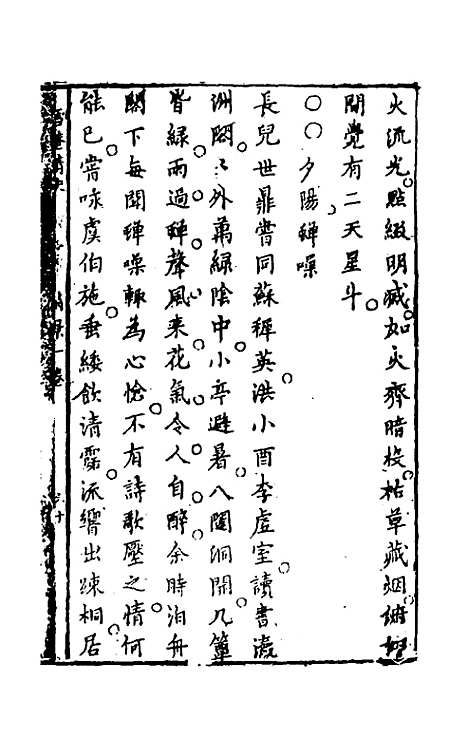 火流光點綴明滅如火齊暗投枯草藏烟
間覺有二天星斗
夕陽蟬噪
長兒世鼎嘗同蘇穉英洪小酉李虛室讀書瀛
洲閣閣外萬綠陰中小亭避暑八闥洞開几簟
皆綠雨過蟬聲風來花氣令人自醉余時泊舟
閣下每聞蟬噪輒為心愴不有詩歌壓之情何
能已嘗咏虞伯施垂緌飲清露流響出疎桐居